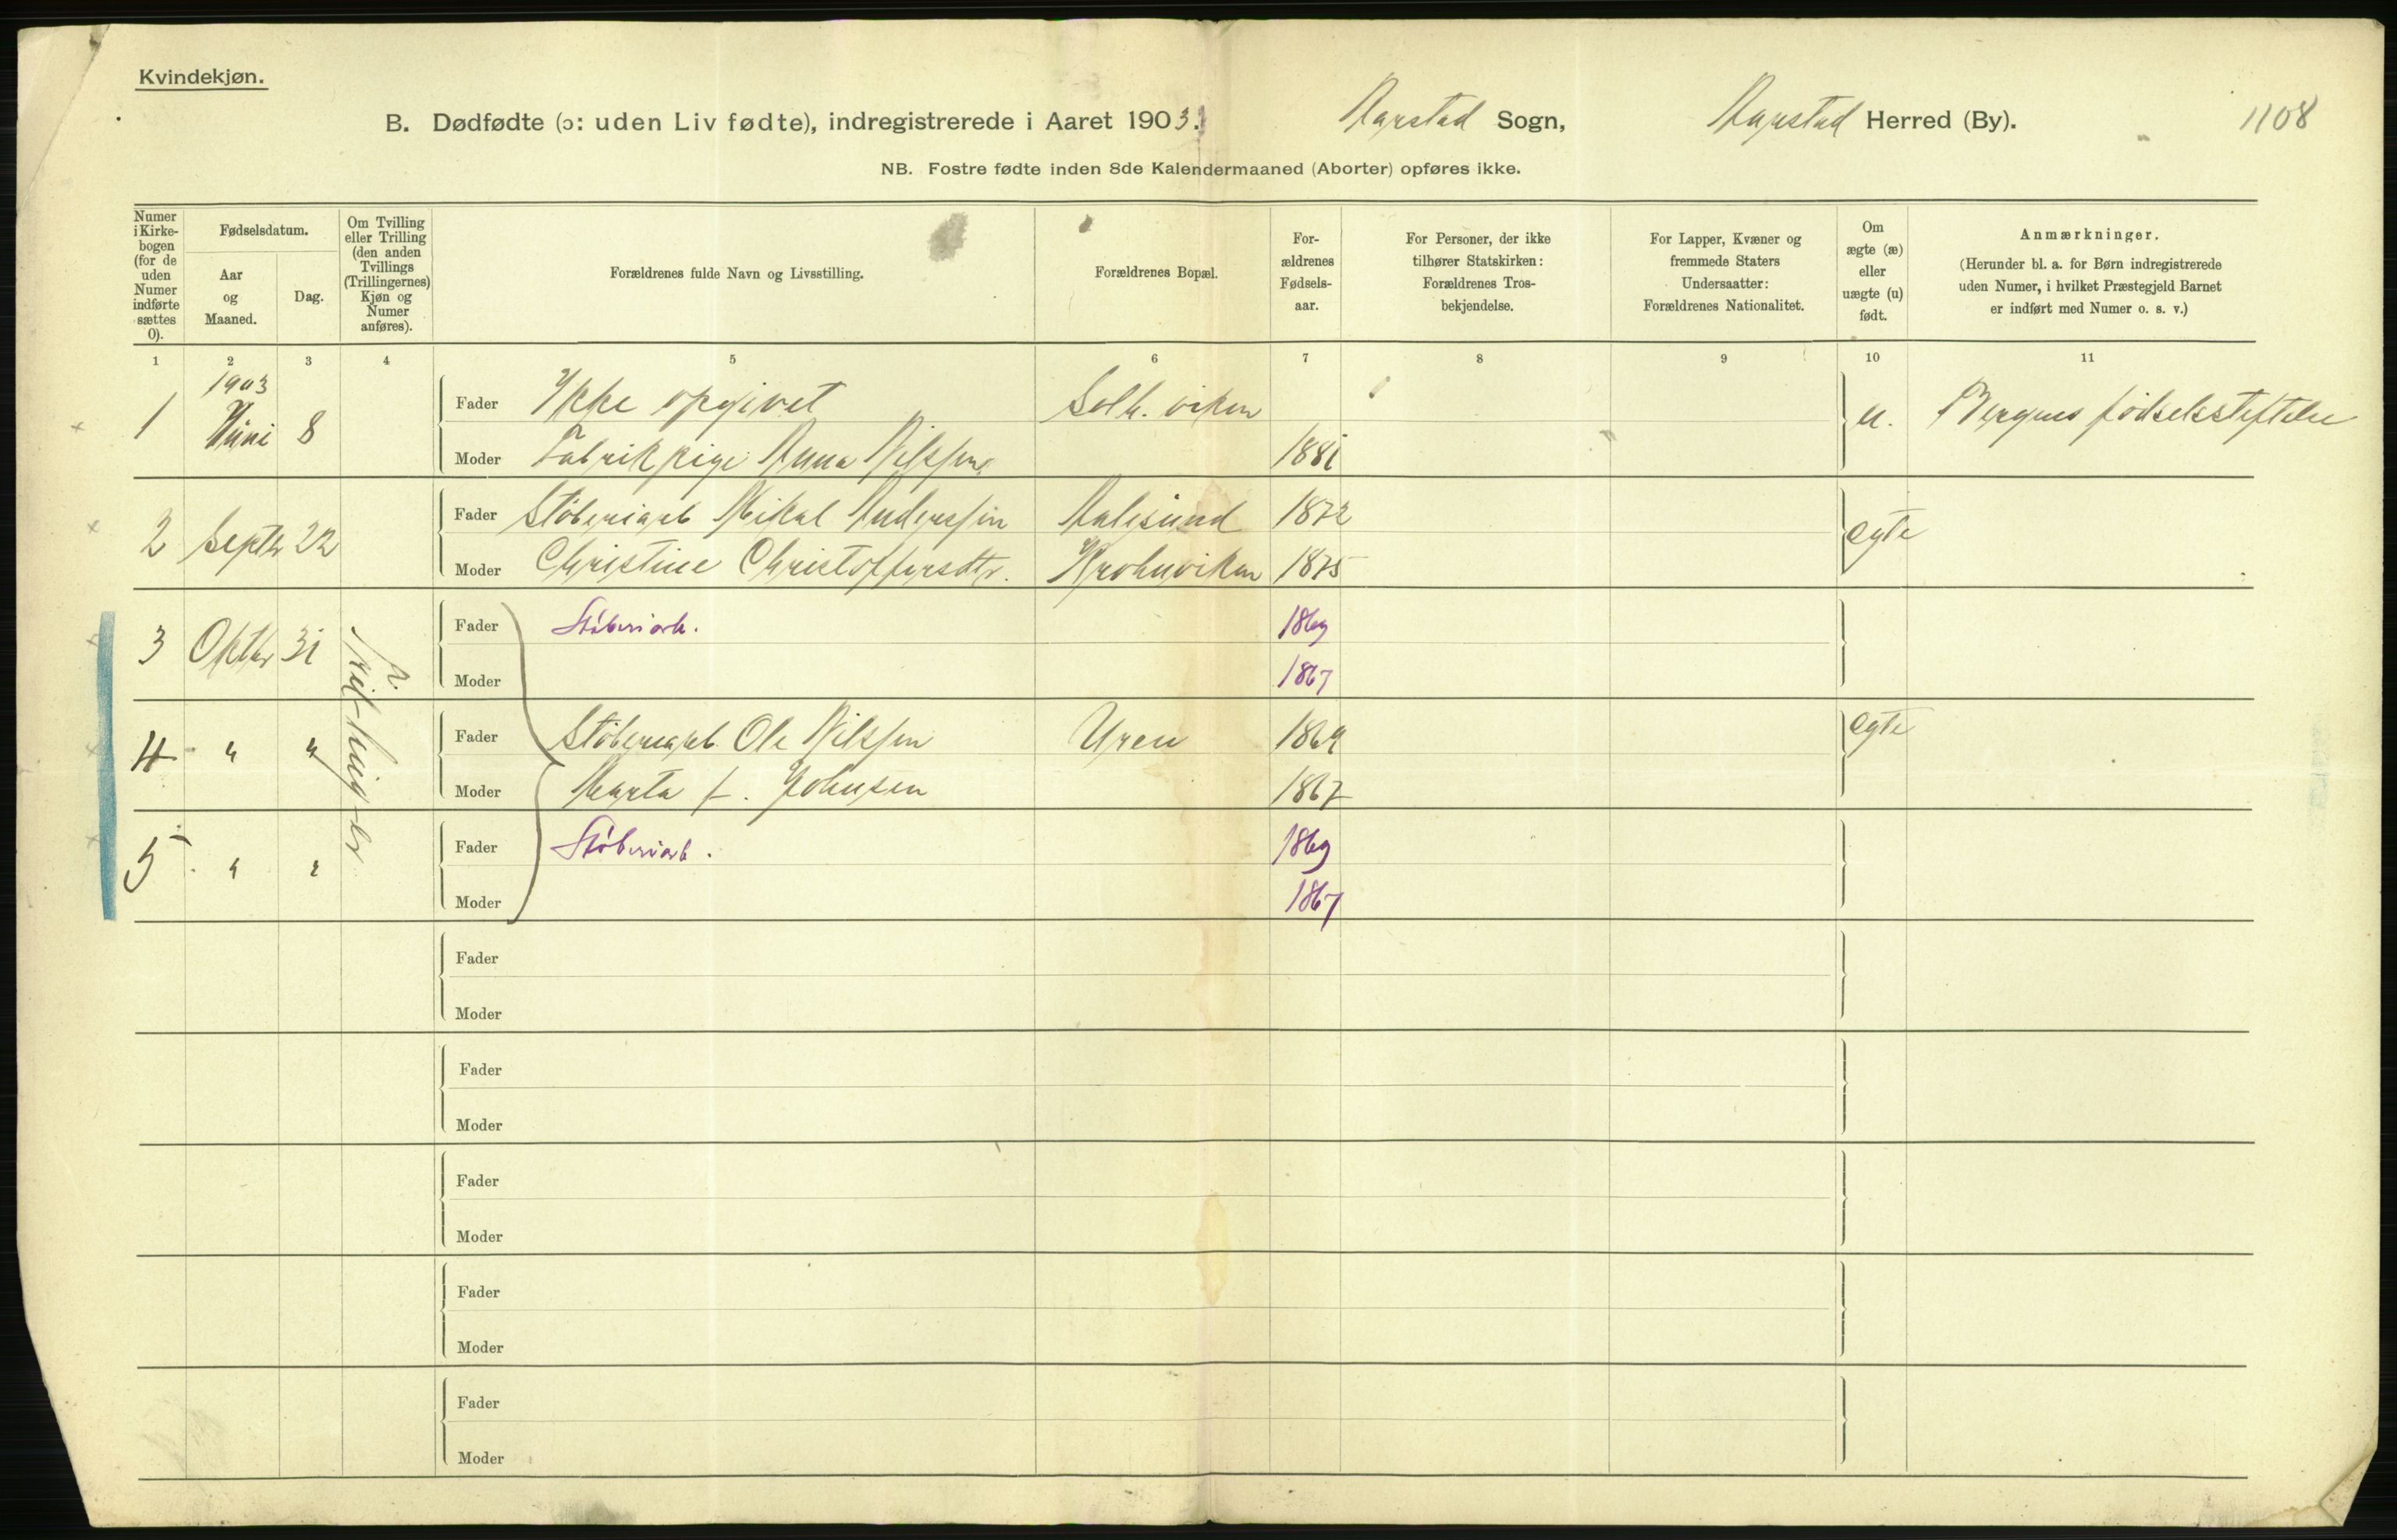 Kvindekjøn.
B. Dødfødte (ɔ: uden Liv fødte), indregistrerede i Aaret 1903. Aarstad Sogn, Aarstad Herred (By). 1108
NB. Fostre fødte inden 8de Kalendermaaned (Aborter) opføres ikke.
Numer
i Kirke-
bogen
(for de
uden
Numer
indførte
sættes
0).
Fødselsdatum.
Aar
og
Maaned.
Dag.
Om Tvilling
eller Trilling
(den anden
Tvillings
(Trillingernes)
Kjøn og
Numer
anføres).
Forældrenes fulde Navn og Livsstilling.
Forældrenes Bopæl.
For-
ældrenes
Fødsels-
aar.
For Personer, der ikke
tilhører Statskirken:
Forældrenes Tros-
bekjendelse.
For Lapper, Kvæner og
fremmede Staters
Undersaatter:
Forældrenes Nationalitet.
Om
ægte (æ)
eller
uægte (u)
født.
Anmærkninger.
(Herunder bl. a. for Børn indregistrerede
uden Numer, i hvilket Præstegjeld Barnet
er indført med Numer o. s. v.)
1 2 3 4 5 6 7 8 9 10 11
1903
1 Juni 8 Fader Ikke opgivet Solh. viken u. Bergens fødselsstiftelse
Moder Fabrikpige Anna Nilssen 1881
2 Septbr 22 Fader Støberiarb Mikal Anderssen Aalesund 1872 egte
Moder Christine Christoffersdtr. Krohnviken 1875
3 Oktbr 31 Fader Støberiarb. 1869
Moder 1867
4 " " Fader Støberiarb. Ole Nilssen Uren 1869 egte
Moder Marta f. Johnsen 1867
5 " " Fader Støberiarb. 1869
Moder 1867
Fader
Moder
Fader
Moder
Fader
Moder
Fader
Moder
Fader
Moder